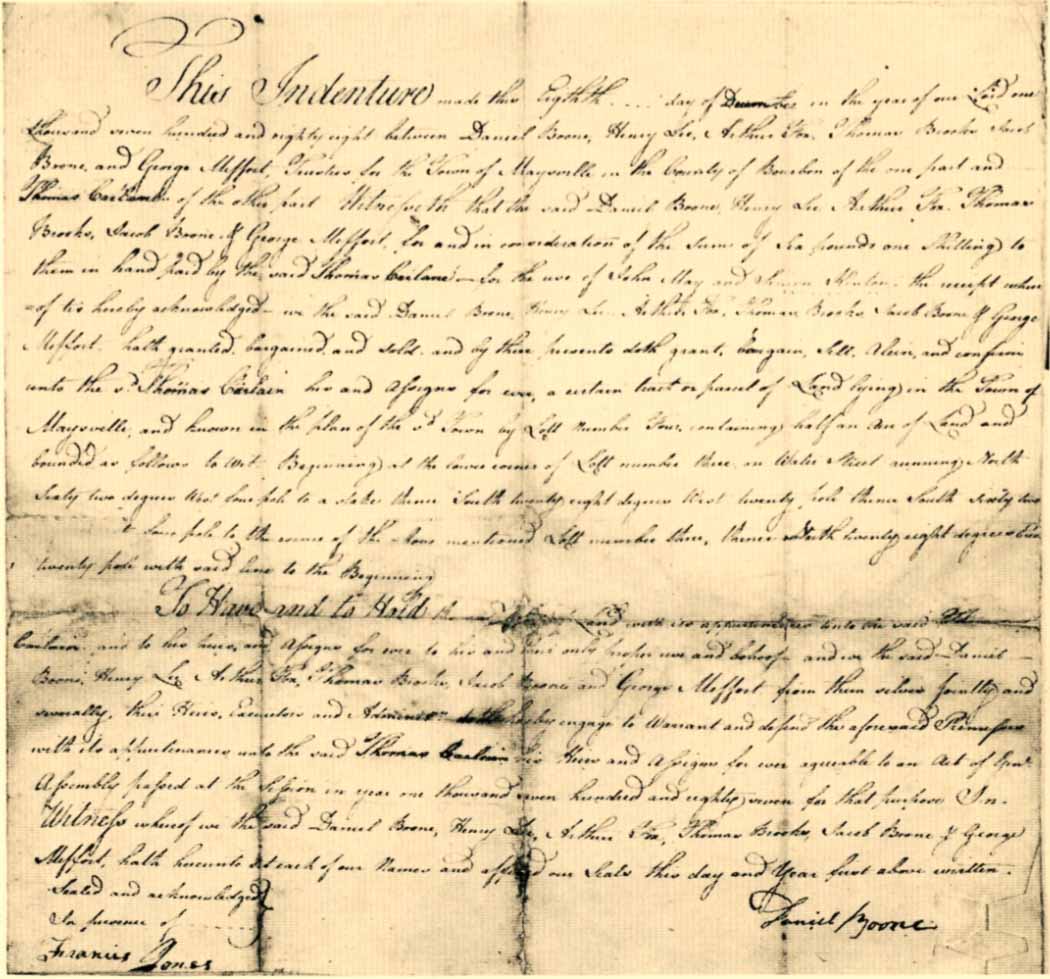 This Indenture made this Eighth .... day of December in the year of our Lord one
thousand seven hundred and eighty eight between Daniel Boone, Henry Lee, Arthur Fox, Thomas Brooks, Jacob
Boone, and George Meffort, Trustees for the Town of Maysville in the County of Bourbon of the one part and
Thomas of the other part Witnesseth that the said Daniel Boone, Henry Lee Arthur Fox, Thomas
Brooks, Jacob Boone & George Meffort, for and in consideration of the sum of Six pounds one Shilling to
them in hand paid by the said Thomas for the use of John May and Simon Kenton the receipt where
=of is hereby acknowledged we the said Daniel Boone, Henry Lee Arthur Fox, Thomas Brooks, Jacob Boone & George
Meffort hath granted, bargained, and sold, and by these presents doth grant, bargain, Sell, Alein, and confirm
unto the sd Thomas his and Assigns for ever, a certain tract or parcel of Land lying in the Town of
Maysville, and known in the plan of the sd Town by Lott Number Four, containing half an Acre of Land and
bounded as follows to Wit Beginning at the lower corner of Lott number three on Water Street running North
Sixty two degrees West four pole to a stake thence South twenty eight degrees West twenty pole thence South sixty two
four pole to the corner of the above mentioned Lott number three, thence North twenty eight degrees East
twenty pole with said line to the Beginning
To Have and to Hold Land with its appurtenances unto the said
and to his heirs, and Assigns for ever to his and their only proper use and behoof and we the said Daniel
Boone, Henry Lee Arthur Fox, Thomas Brooks, Jacob Boone and George Meffort from them selves jointly and
severally, their Heirs, Executors and hereby engage to Warrant and defend the aforesaid Premises
with its appurtenances unto the said Thomas his Heirs and Assigns for ever agreable to an Act of
Assembly passed at the Session in year one thousand seven hundred and eighty seven for that purpose In
Witness whereof we the said Daniel Boone, Henry Lee, Arthur Fox, Thomas Brooks, Jacob Boone & George
Meffort, hath hereunto set each of our Names and affixed our Seals this day and Year first above written.
Sealed and acknowledged
In presence of ........
Daniel Boone
Francis Jones